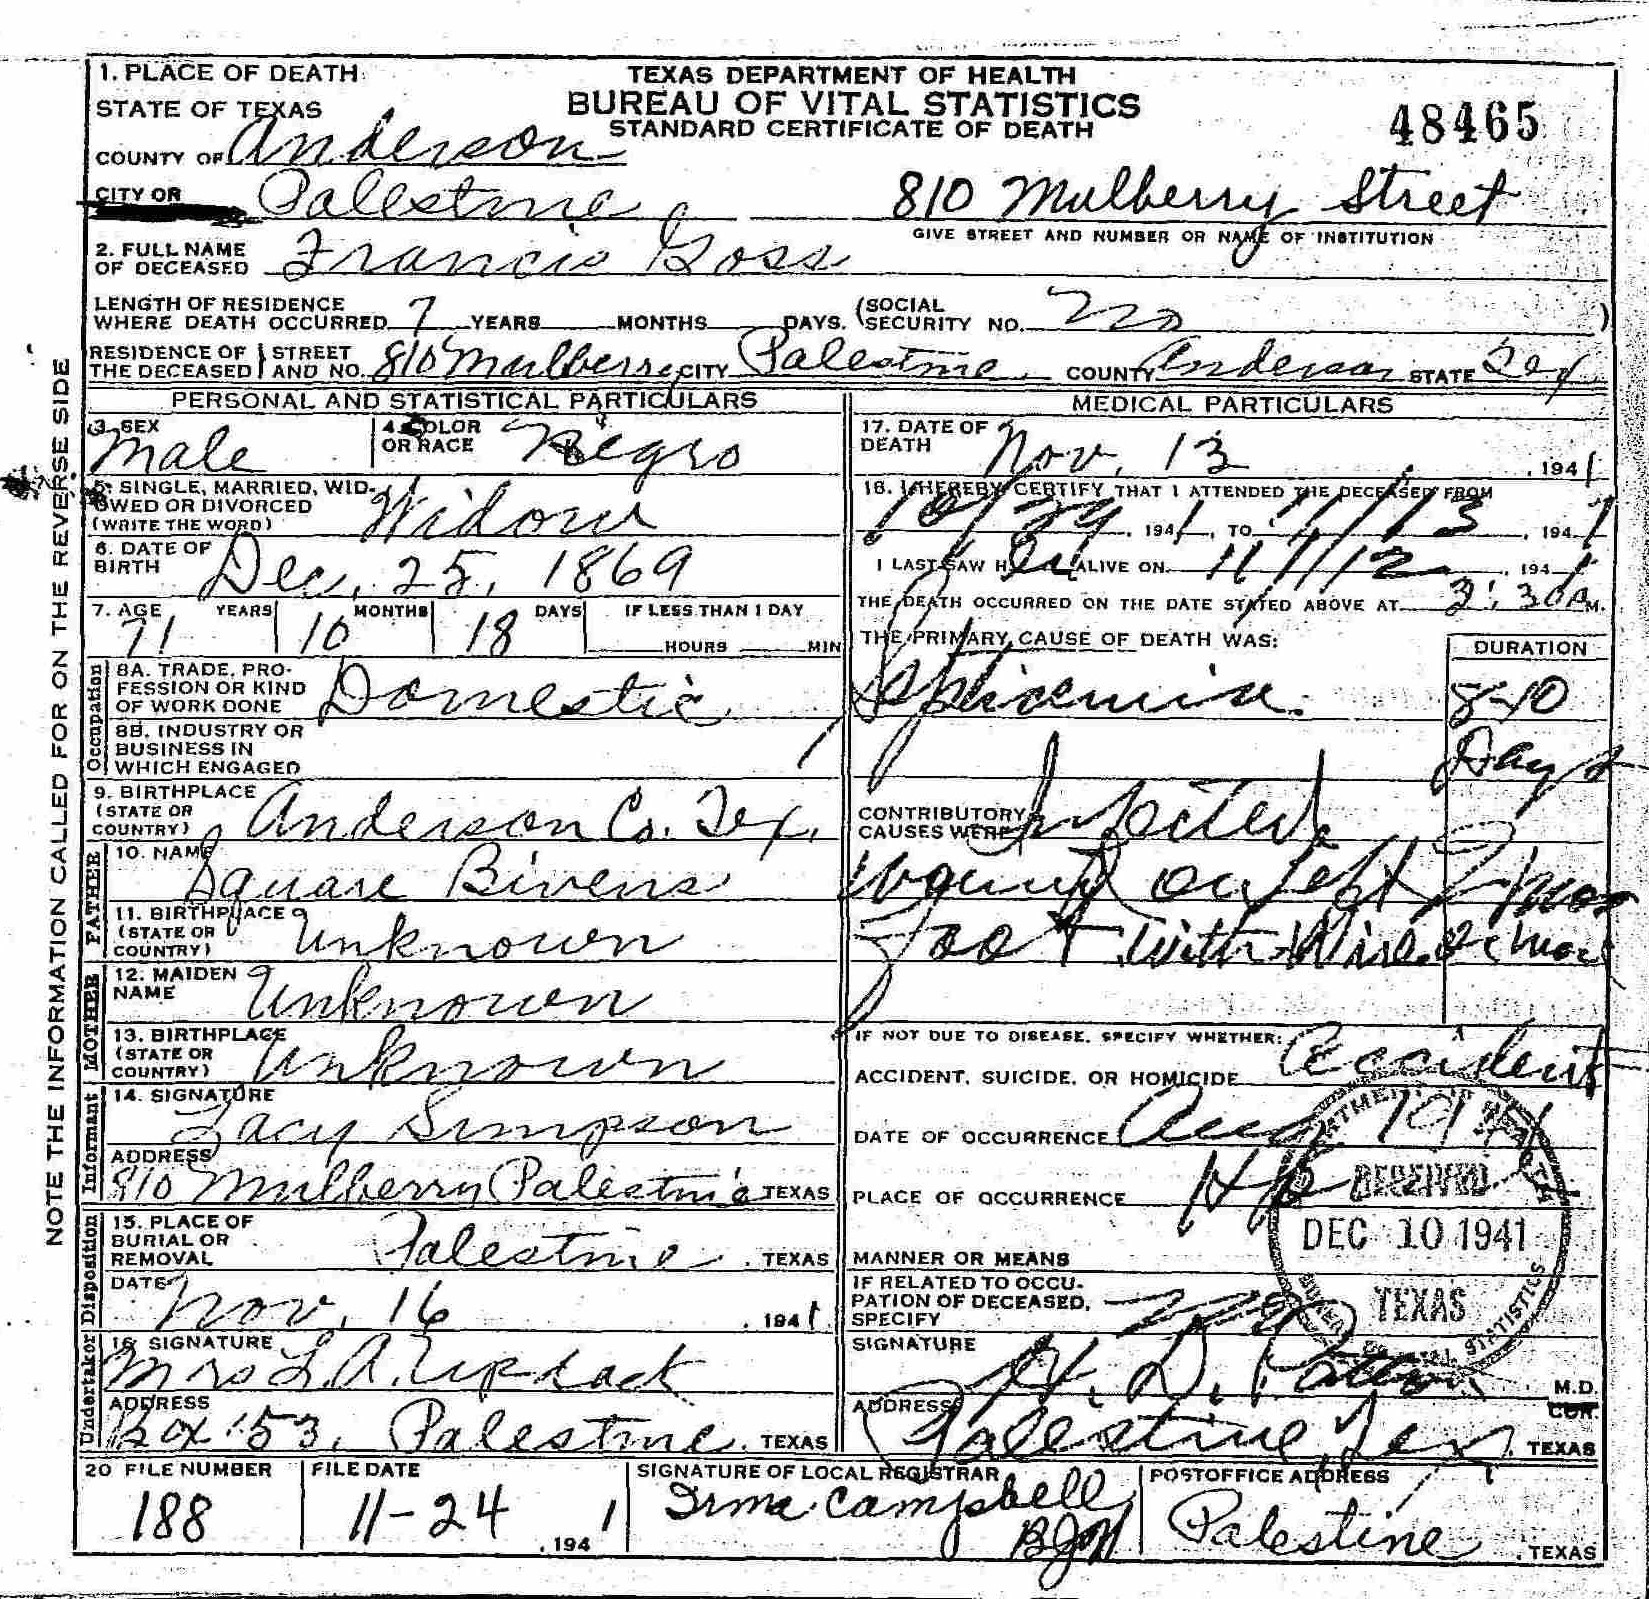 1. PLACE OF DEATH
STATE OF TEXAS
COUNTY OF Anderson
CITY OR Palestine
TEXAS DEPARTMENT OF HEALTH
BUREAU OF VITAL STATISTICS
STANDARD CERTIFICATE OF DEATH
48465
810 Mulberry Street
GIVE STREET AND NUMBER OR NAME OF INSTITUTION
2. FULL NAME
OF DECEASED Francis Goss
LENGTH OF RESIDENCE
WHERE DEATH OCCURRED 7 YEARS MONTHS DAYS. (SOCIAL
SECURITY NO. no )
RESIDENCE OF THE DECEASED STREET AND NO. 810 Mulberry CITY Palestine COUNTY Anderson STATE Tex
PERSONAL AND STATISTICAL PARTICULARS
3. SEX
Male
4. COLOR
OR RACE Negro
5. SINGLE, MARRIED, WID-
OWED OR DIVORCED
(WRITE THE WORD) Widow
6. DATE OF
BIRTH Dec. 25, 1869
7. AGE YEARS MONTHS DAYS IF LESS THAN 1 DAY
71 10 18 HOURS MIN
Occupation
8A. TRADE, PRO-
FESSION OR KIND
OF WORK DONE Domestic
8B. INDUSTRY OR
BUSINESS IN
WHICH ENGAGED
9. BIRTHPLACE
(STATE OR
COUNTRY) Anderson Co. Tex.
FATHER
10. NAME
Square Bivens
11. BIRTHPLACE
(STATE OR
COUNTRY) Unknown
MOTHER
12. MAIDEN
NAME Unknown
13. BIRTHPLACE
(STATE OR
COUNTRY) Unknown
Informant
14. SIGNATURE
Lacy Simpson
ADDRESS
810 Mulberry Palestine TEXAS
Undertaker Disposition
15. PLACE OF
BURIAL OR
REMOVAL Palestine, TEXAS
DATE
Nov. 16, 1941
16. SIGNATURE
Mrs L. A.
ADDRESS
Box 53, Palestine, TEXAS
MEDICAL PARTICULARS
17. DATE OF
DEATH Nov. 13, 1941
18. I HEREBY CERTIFY THAT I ATTENDED THE DECEASED FROM
10/29, 1941, TO 11/13, 1941
I LAST SAW H ALIVE ON 11/12, 194
THE DEATH OCCURRED ON THE DATE STATED ABOVE AT 3:30 P.M.
THE PRIMARY CAUSE OF DEATH WAS:
DURATION
8-10
Days
CONTRIBUTORY
CAUSES WERE Infected
wound on left 2 mos
Foot with
IF NOT DUE TO DISEASE, SPECIFY WHETHER:
ACCIDENT, SUICIDE, OR HOMICIDE Accident
DATE OF OCCURRENCE Aug 1941
PLACE OF OCCURRENCE
MANNER OR MEANS
IF RELATED TO OCCU-
PATION OF DECEASED,
SPECIFY no
SIGNATURE
H. D. M.D.
COR.
ADDRESS
Palestine, Tex, TEXAS
RECEIVED
DEC 10 1941
TEXAS
20 FILE NUMBER
188
FILE DATE
11-24, 1941
SIGNATURE OF LOCAL REGISTRAR
Irma Campbell
POSTOFFICE ADDRESS
Palestine, TEXAS
NOTE THE INFORMATION CALLED FOR ON THE REVERSE SIDE